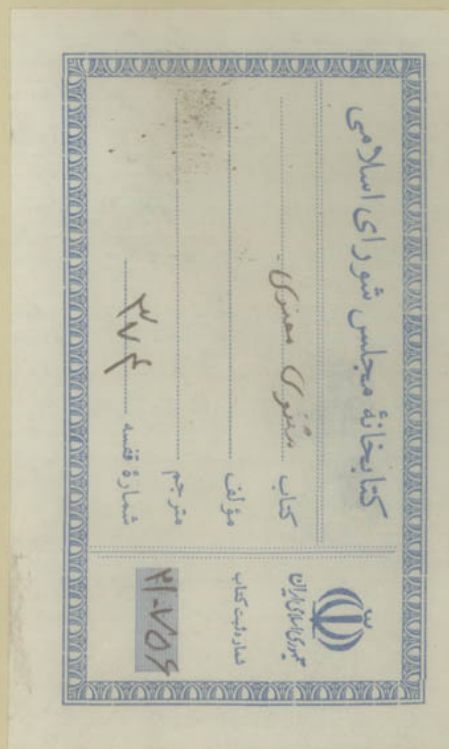 کتابخانهٔ مجلس شورای اسلامی
کتاب مثنوی معنوی
مؤلف
مترجم
شمارهٔ قفسه ۳۷۴
جمهوری اسلامی ایران
شماره ثبت کتاب
۲۱۰۷۵۶